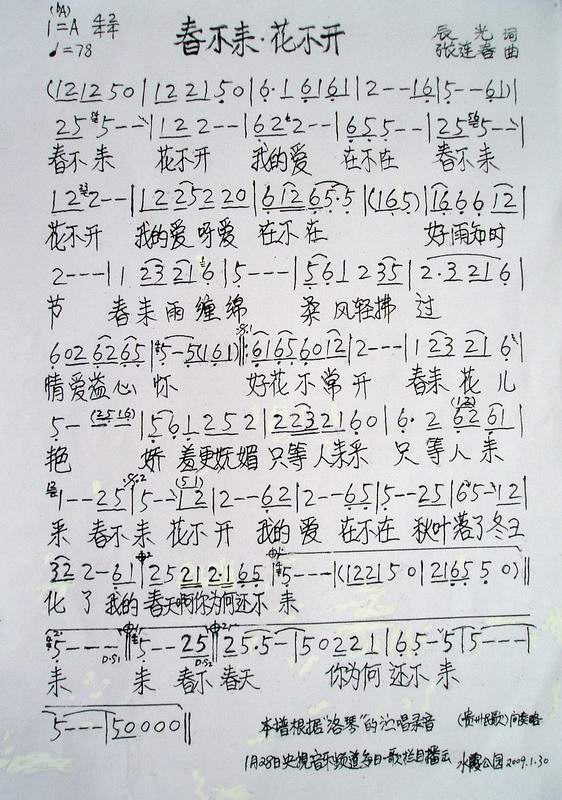 (♭A)
1=A 4/4 2/4
♩=78
春不来·花不开
辰光 词
张连春 曲
(1 2 1 2 5 0 | 1 2 2 1 5 0 | 6· 1 6 1 6 1 | 2 - - 1 6 | 5 - - 6 1) |
2 5 5 - - | 1 2 2 - - | 6 2 2 - - | 6 5 5 - - | 2 5 5 - - |
春不来 花不开 我的爱 在不在 春不来
1 2 2 - - | 1 2 2 5 2 2 0 | 6 1 2 6 5· 5 | (1 6 5) | 1 6 6 6 1 2 |
花不开 我的爱呀爱 在不在 好雨知时
2 - - - | 1 2 3 2 1 6 | 5 - - - | 5 6 1 2 3 5 | 2· 3 2 1 6 |
节 春来雨缠绵 柔风轻拂过
6 0 2 6 2 6 5 | 5 - 5 (1 6 1) ‖: 6 1 6 5 6 0 1 2 | 2 - - - | 1 2 3 2 1 6 |
情爱益心怀 好花不常开 春来花儿
5 - (2 5 1 6) | 5 6 1 2 5 2 | 2 2 3 2 1 6 0 | 6· 2 6 2 6 1 |
艳 娇羞更妩媚 只等人来采 只等人来
1 - - 2 5 | 5 - - 1 2 | 2 - - 6 2 | 2 - - 6 5 | 5 - - 2 5 | 6 5 - 1 2 |
采 春不来 花不开 我的爱 在不在 秋叶落了冬又
3 2 2 - 6 1 | 2 5 2 1 2· 1 6 5 | 5 - - - | (1 2 2 1 5 0 | 2 1 6 5 5 0) ‖
化了我的春天啊你为何还不来
5 - - - D.S1 ‖ 5 - - 2 5 D.S2 ‖ 2 5· 5 - | 5 0 2 2 1 | 6 5 - 5 | 5 - - - |
来 来 春不春天 你为何还不来
5 - - - | 5 0 0 0 0 ‖
本谱根据“洛琴”的演唱录音 (贵州民歌) 间奏略
1月28日央视音乐频道每日一歌栏目播出 水霞公园 2009.1.30